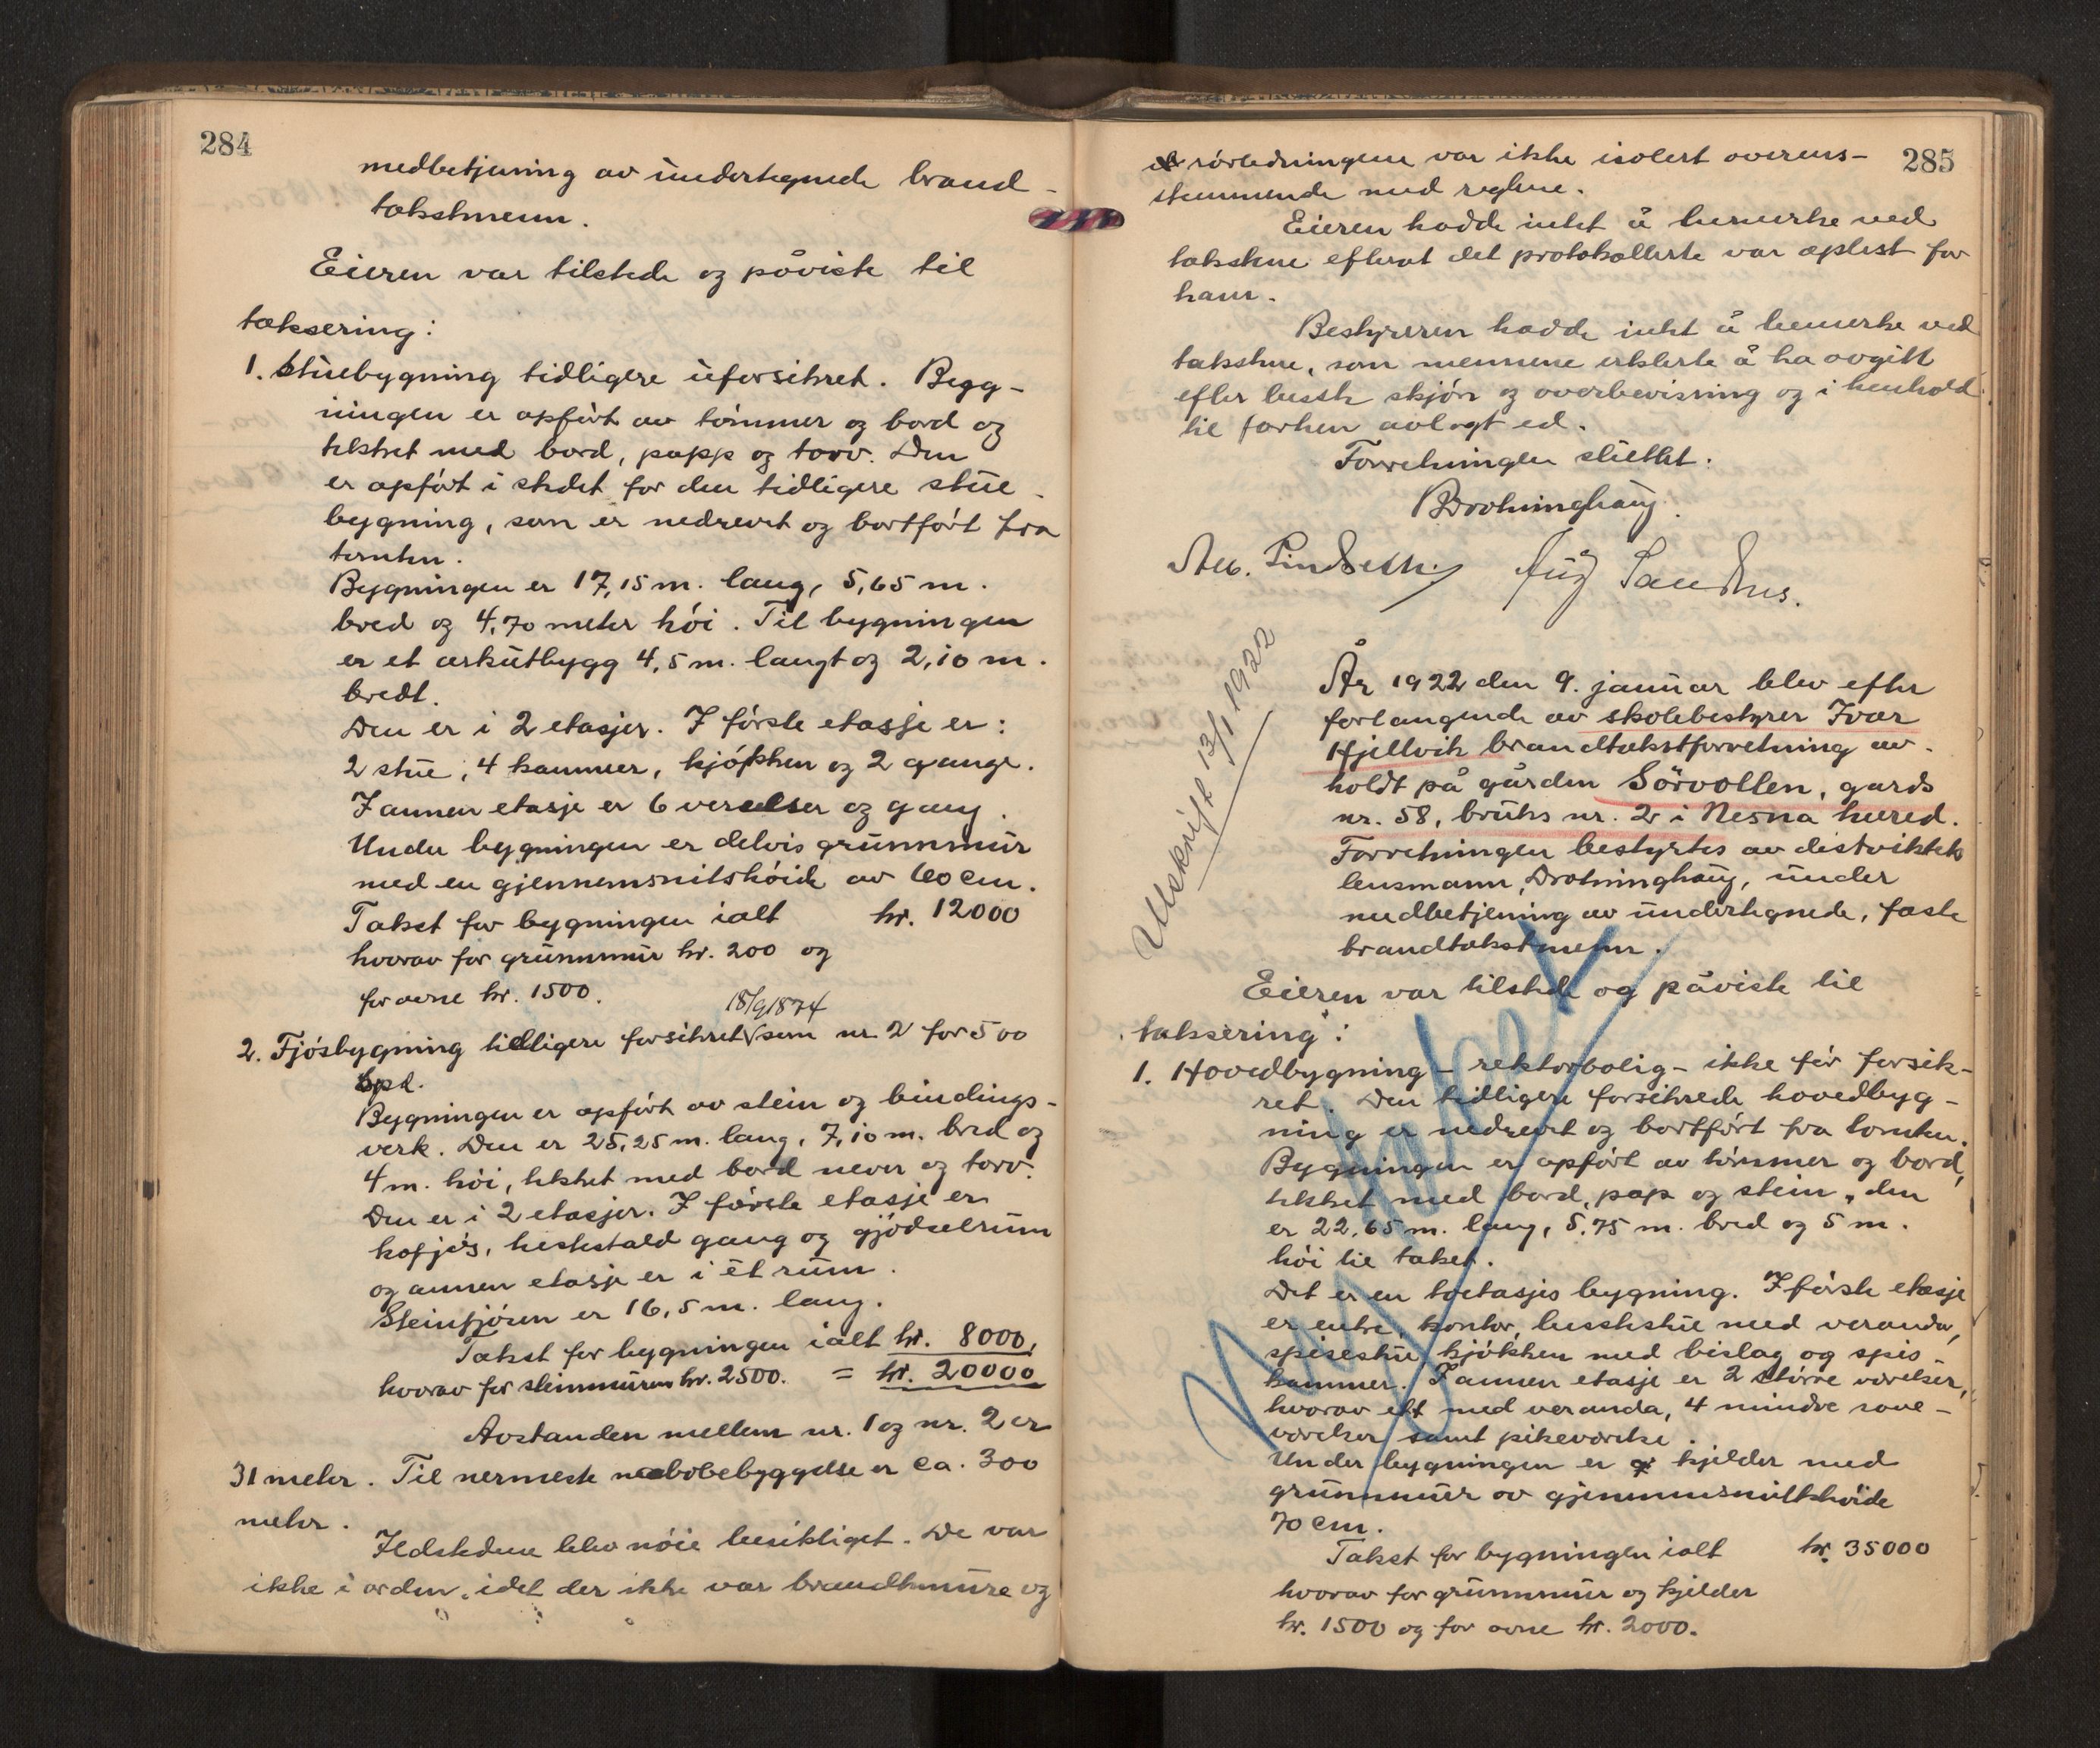 284
medbetjening av undertegnede brand-
takstmenn.
Eieren var tilstede og påviste til
taksering:
1. Stuebygning tidligere uforsikret. Bygg-
ningen er opført av tømmer og bord og
tekket med bord, papp og torv. Den
er opført i stedet for den tidligere stue-
bygning, som er nedrevet og bortført fra
tomten.
Bygningen er 17,15 m. lang, 5,65 m.
bred og 4,70 meter høi. Til bygningen
er et arkutbygg 4,5 m. langt og 2,10 m.
bredt.
Den er i 2 etasjer. I første etasje er:
2 stue, 4 kammer, kjøkken og 2 gange.
I annen etasje er 6 verelser og gang.
Under bygningen er delvis grunnmur
med en gjennemsnitshøide av 60 cm.
Takst for bygningen ialt kr. 12000
hvorav for grunnmur kr. 200 og
for ovne kr. 1500.
18/9 1874
2. Fjøsbygning tidligere forsikret som nr 2 for 500
Spd.
Bygningen er opført av stein og bindings-
verk. Den er 25,25 m. lang, 7,10 m. bred og
4 m. høi, tekket med bord never og torv.
Den er i 2 etasjer. I første etasje er
kofjøs, hestestald gang og gjødselrum
og annen etasje er i et rum.
Steinfjøsen er 16,5 m. lang.
Takst for bygningen ialt kr. 8000,
hvorav for steinmuren kr. 2500. = kr. 20000
Avstanden mellem nr. 1 og nr. 2 er
31 meter. Til nermeste nabobebyggelse er ca. 300
meter.
Ildstedene blev nøie besiktiget. De var
ikke i orden, idet der ikke var brandmure og
285
rørledningene var ikke isolert overens-
stemmende med reglene.
Eieren hadde intet å bemerke ved
takstene efterat det protokollerte var oplest for
ham.
Bestyreren hadde intet å bemerke ved
takstene, som mennene erklerte å ha avgitt
efter beste skjøn og overbevisning og i henhold
til forhen avlagt ed.
Forretningen sluttet.
Drotninghaug.
Alb. Sindseth. Aug Sandnes.
Utskrift 13/1 1922
År 1922 den 9. januar blev efter
forlangende av skolebestyrer Ivar
Hjellvik brandtakstforretning av-
holdt på gården Sörvollen, gards
nr. 58, bruks nr. 2 i Nesna hered.
Forretningen bestyrtes av distriktets
lensmann, Drotninghaug, under
medbetjening av undertegnede, faste
brandtakstmenn.
Eieren var tilstede og påviste til
taksering:
1. Hovedbygning - rektorbolig - ikke før forsik-
ret. Den tidligere forsikrede hovedbyg-
ning er nedrevet og bortført fra tomten.
Bygningen er opført av tømmer og bord,
tekket med bord, pap og stein, den
er 22,65 m. lang, 5,75 m. bred og 5 m.
høi til taket.
Det er en toetasjes bygning. I første etasje
er entre, kontor, bestestue med veranda,
spisestue, kjøkken med bislag og spis-
kammer. I annen etasje er 2 større værelser,
hvorav ett med veranda, 4 mindre sove-
værelser samt pikeværelse.
Under bygningen er kjelder med
grunnmur av gjennemsnittshøide
70 cm.
Takst for bygningen ialt kr. 35000
hvorav for grunnmur og kjelder
kr. 1500 og for ovne kr. 2000.